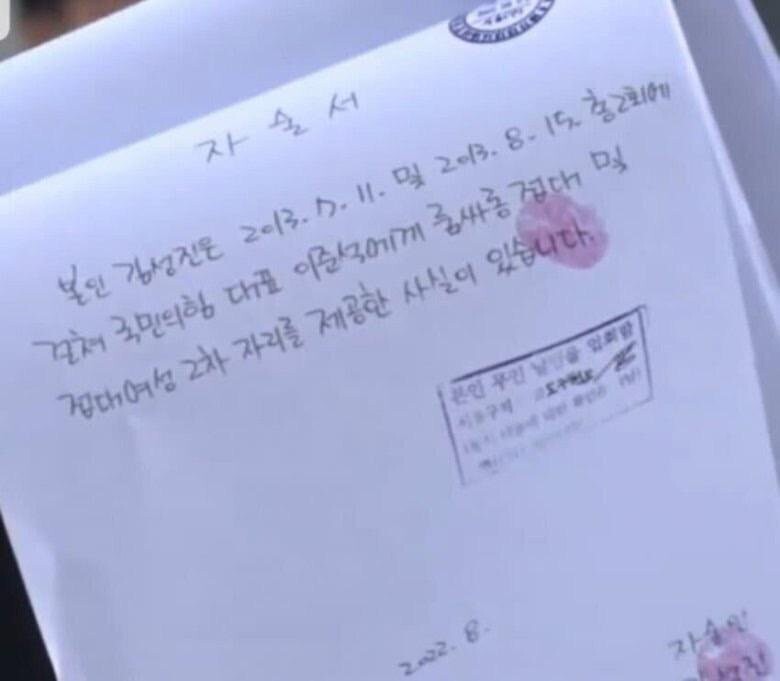 자술서
본인 김성진은 2013. 7. 11. 및 2013. 8. 15. 총2회에
걸쳐 국민의힘 대표 이준석에게 룸싸롱 접대 및
접대여성 2차 자리를 제공한 사실이 있습니다.
본인 무인 날인을
2022. 8.
자술인
성진